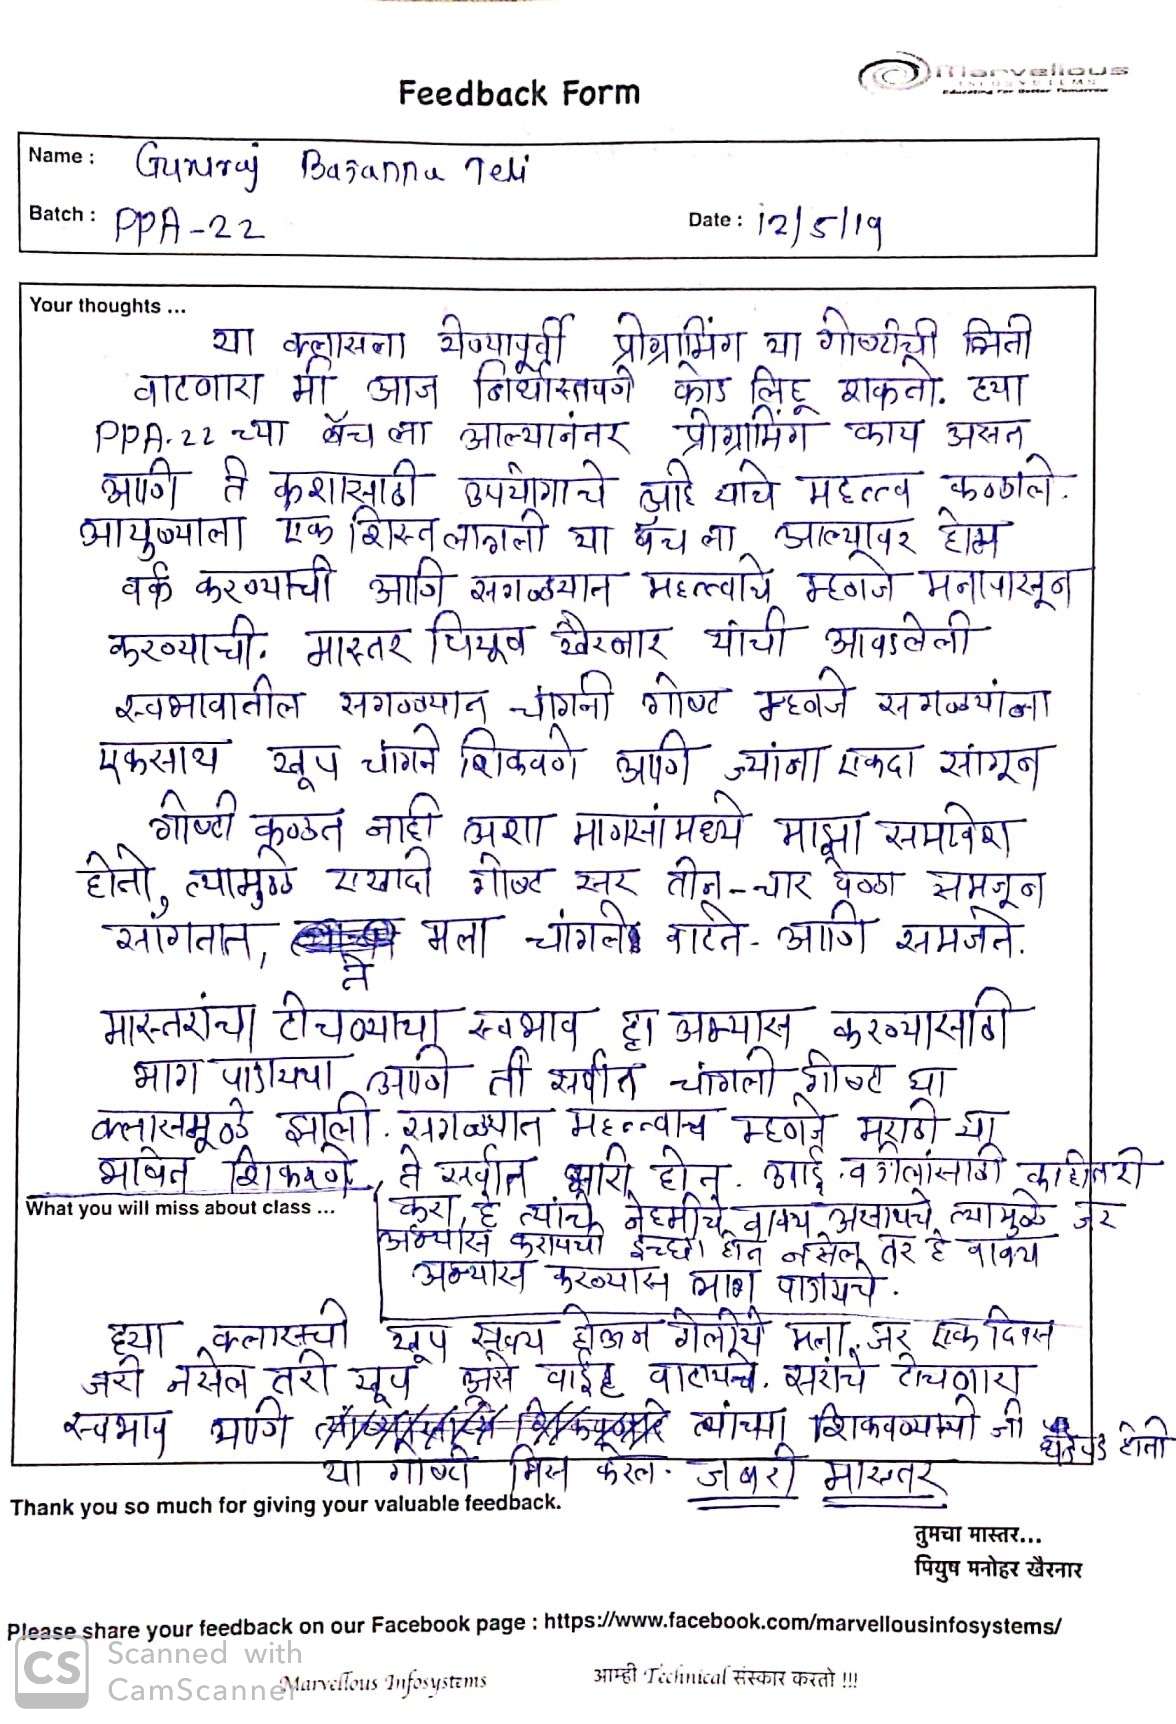 Marvellous
INFOSYSTEMS
Educating For Better Tomorrow
Feedback Form
Name : Gururaj Basanna Teli
Batch : PPA-22 Date : 12/5/19
Your thoughts ...
या क्लासला येण्यापूर्वी प्रोग्रामिंग या गोष्टीची भिती
वाटणारा मी आज निर्धास्तपणे कोड लिहू शकतो. ह्या
PPA-22 च्या बॅच ला आल्यानंतर प्रोग्रामिंग काय असत
आणि ते कशासाठी उपयोगाचे आहे याचे महत्त्व कळाले.
आयुष्याला एक शिस्त लागली या बॅच ला आल्यावर होम
वर्क करण्याची आणि सगळ्यात महत्त्वाचे म्हणजे मनापासून
करण्याची. मास्तर पियूष खैरनार यांची आवडलेली
स्वभावातील सगळ्यात चांगली गोष्ट म्हणजे सगळ्यांना
एकसाथ खूप चांगले शिकवणे आणि ज्यांना एकदा सांगून
गोष्टी कळत नाही अशा माणसांमध्ये माझा समावेश
होतो, त्यामुळे एखादी गोष्ट सर तीन-चार वेळा समजून
सांगतात, ते मला चांगले वाटते - आणि समजते.
मास्तरांचा टोचण्याचा स्वभाव हा अभ्यास करण्यासाठी
भाग पाडायचा आणि ती सर्वात चांगली गोष्ट या
क्लासमूळे झाली. सगळ्यात महत्त्वाच म्हणजे मराठी या
भाषेत शिकवणे, ते सर्वात भारी होत. आई-वडीलांसाठी काहीतरी
करा, हे त्यांचे नेहमीचे वाक्य असायचे त्यामुळे जर
अभ्यास करायची इच्छा होत नसेल तर हे वाक्य
अभ्यास करण्यास भाग पाडायचे.
What you will miss about class ...
ह्या क्लासची खूप सवय होऊन गेलीये मला, जर एक दिवस
जरी नसेल तरी खूप असे वाईट वाटायचे. सरांचे टोचणारा
स्वभाव आणि त्यांच्या शिकवण्याची जी धडपड होती
या गोष्टी मिस करेल. जबरी मास्तर
Thank you so much for giving your valuable feedback.
तुमचा मास्तर...
पियुष मनोहर खैरनार
Please share your feedback on our Facebook page : https://www.facebook.com/marvellousinfosystems/
CS Scanned with
CamScanner
Marvellous Infosystems आम्ही Technical संस्कार करतो !!!